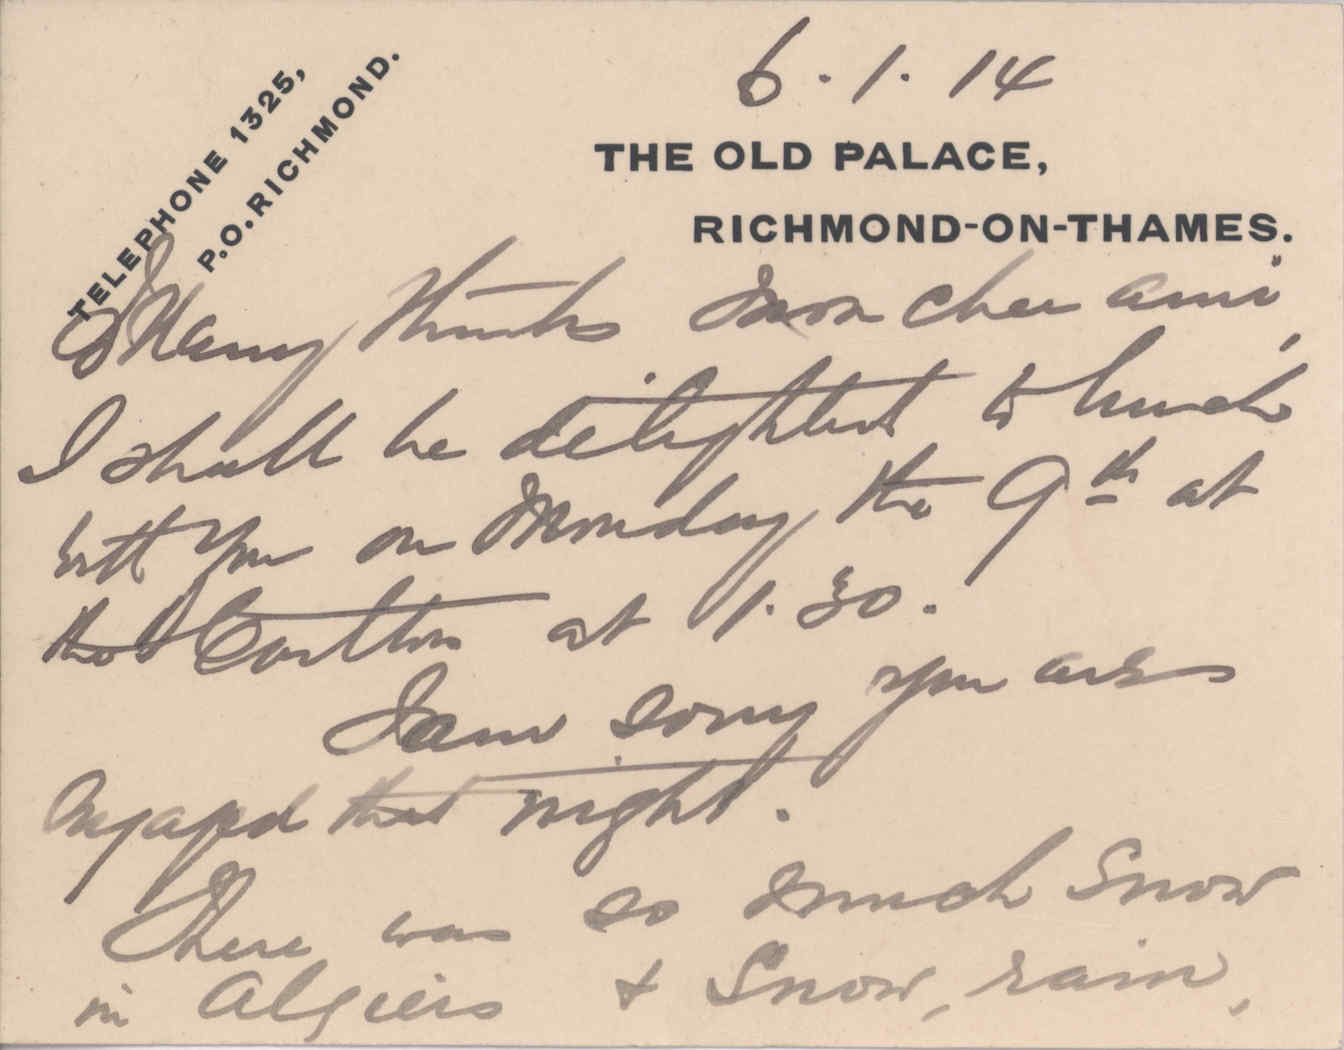 TELEPHONE 1325,
P.O. RICHMOND.
6.1.14
THE OLD PALACE,
RICHMOND-ON-THAMES.
Many thanks mon cher ami,
I shall be delighted to lunch
with you on Monday the 9th at
the Carlton at 1.30.
I am sorry you are
engaged that night.
There was so much snow
in Algiers & snow, rain,